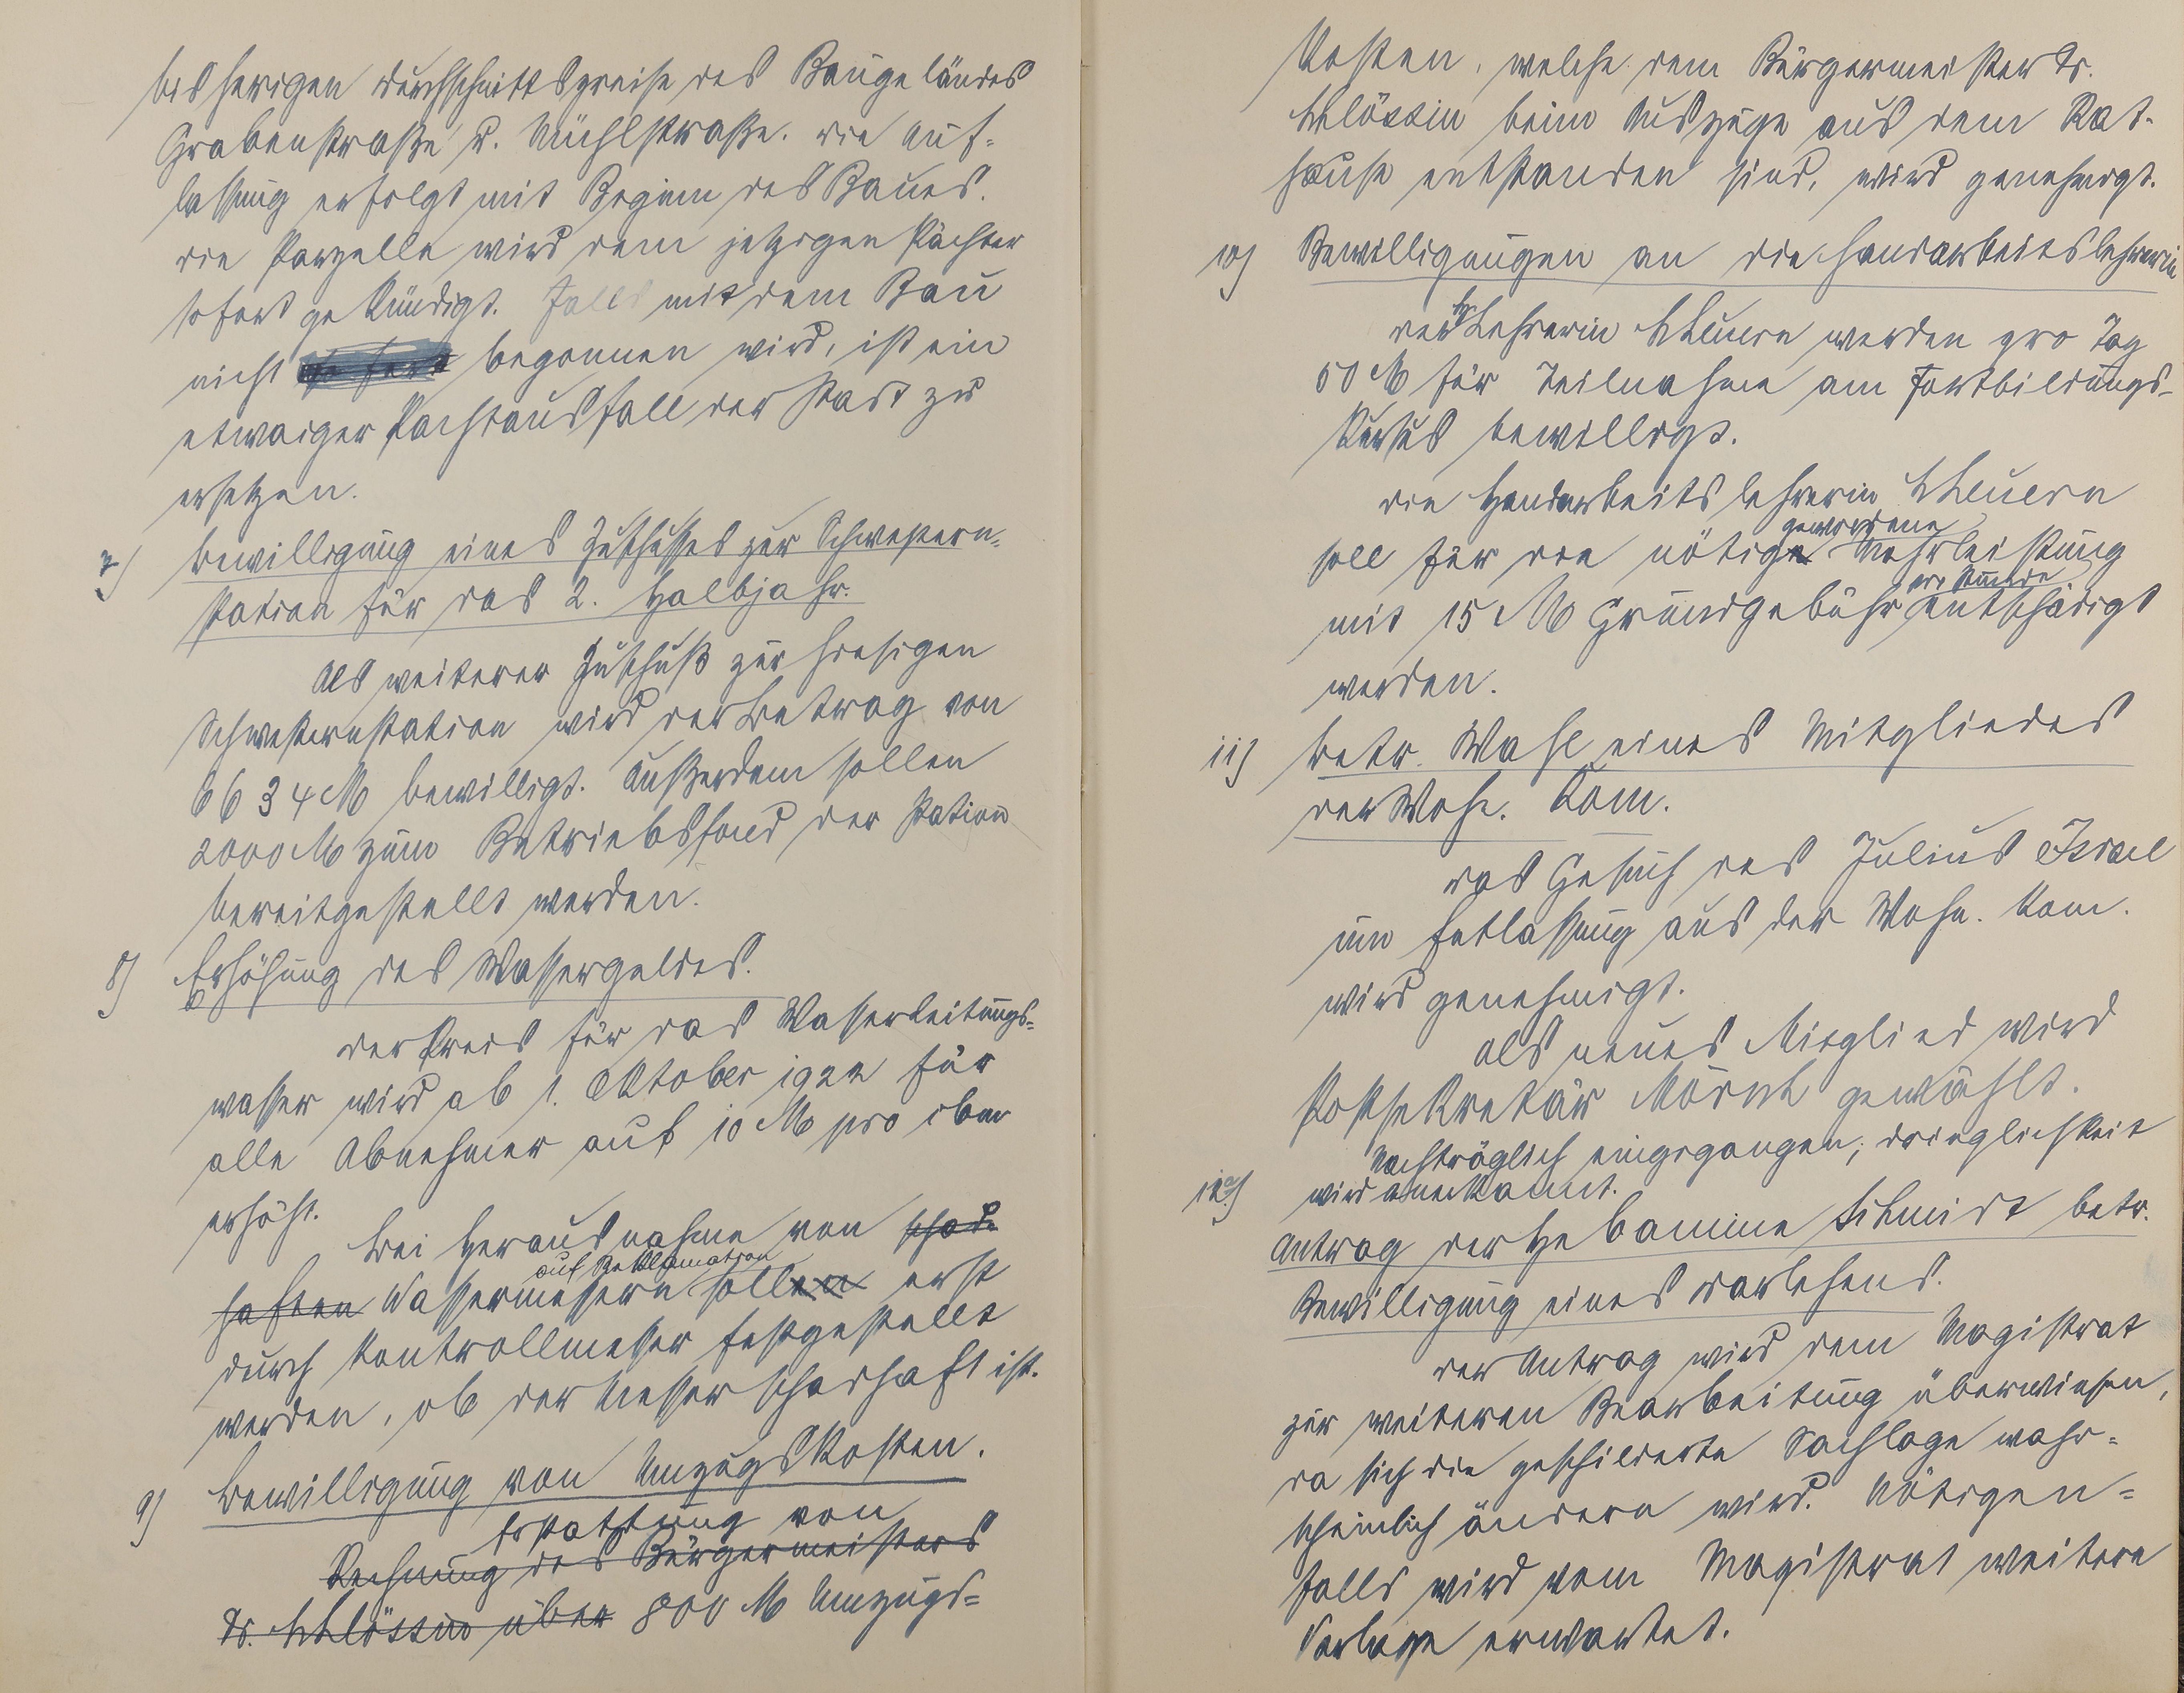 bisherigen Durchschnittspreise des Baugeländes
Grabenstraße u. Mühlstraße. Die Auf-
lassung erfolgt mit Beginn des Baues.
Die Parzelle wird dem jetzigen Pächter
sofort gekündigt. Falls mit dem Bau
nicht sofort begonnen wird, ist ein
etwaiger Pachtausfall der Stadt zu
ersetzen.
7) Bewilligung eines Zuschusses zur Schwestern-
station für das 2. Halbjahr.
Als weiterer Zuschuß zur hiesigen
Schwesternstation wird der Betrag von
6634 M bewilligt. Außerdem sollen
2000 M zum Betriebsfond der Station
bereitgestellt werden.
8) Erhöhung des Wassergeldes.
Der Preis für das Wasserleitungs-
wasser wird ab 1. Oktober 1922 für
alle Abnehmer auf 10 M pro cbm
erhöht.
Bei Herausnahme von schad-
haften Wassermessern sollen erst
auf Reklamation
durch Kontrollmesser festgestellt
werden, ob der Messer schadhaft ist.
9) Bewilligung von Umzugskosten.
Erstattung von
Rechnung des Bürgermeisters
Dr. Schlössin über 800 M Umzugs-
Kosten, welche dem Bürgermeister Dr.
Schlössin beim Auszuge aus dem Rat-
hause entstanden sind, wird genehmigt.
10) Bewilligungen an die Handarbeitslehrerin
Der Lehrerin Scheuern werden pro Tag
50 M für Teilnahme am Fortbildungs-
Kursus bewilligt.
Die Handarbeitslehrerin Scheuern
gewordene
soll für die nötige Mehrleistung
pro Stunde
mit 15 M Grundgebühr entschädigt
werden.
11) Betr. Wahl eines Mitgliedes
der Wohn. Kom.
Das Gesuch des Julius Israel
um Entlassung aus der Wohn. Kom.
wird genehmigt.
Als neues Mitglied wird
Postsekretär Mörsch gewählt.
Nachträglich eingegangen; Dringlichkeit
12a) wird anerkannt.
Antrag der Hebamme Schmidt betr.
Bewilligung eines Darlehens.
Der Antrag wird dem Magistrat
zur weiteren Bearbeitung überwiesen,
da sich die geschilderte Sachlage wahr-
scheinlich ändern wird. Nötigen-
falls wird vom Magistrat weitere
Vorlage erwartet.